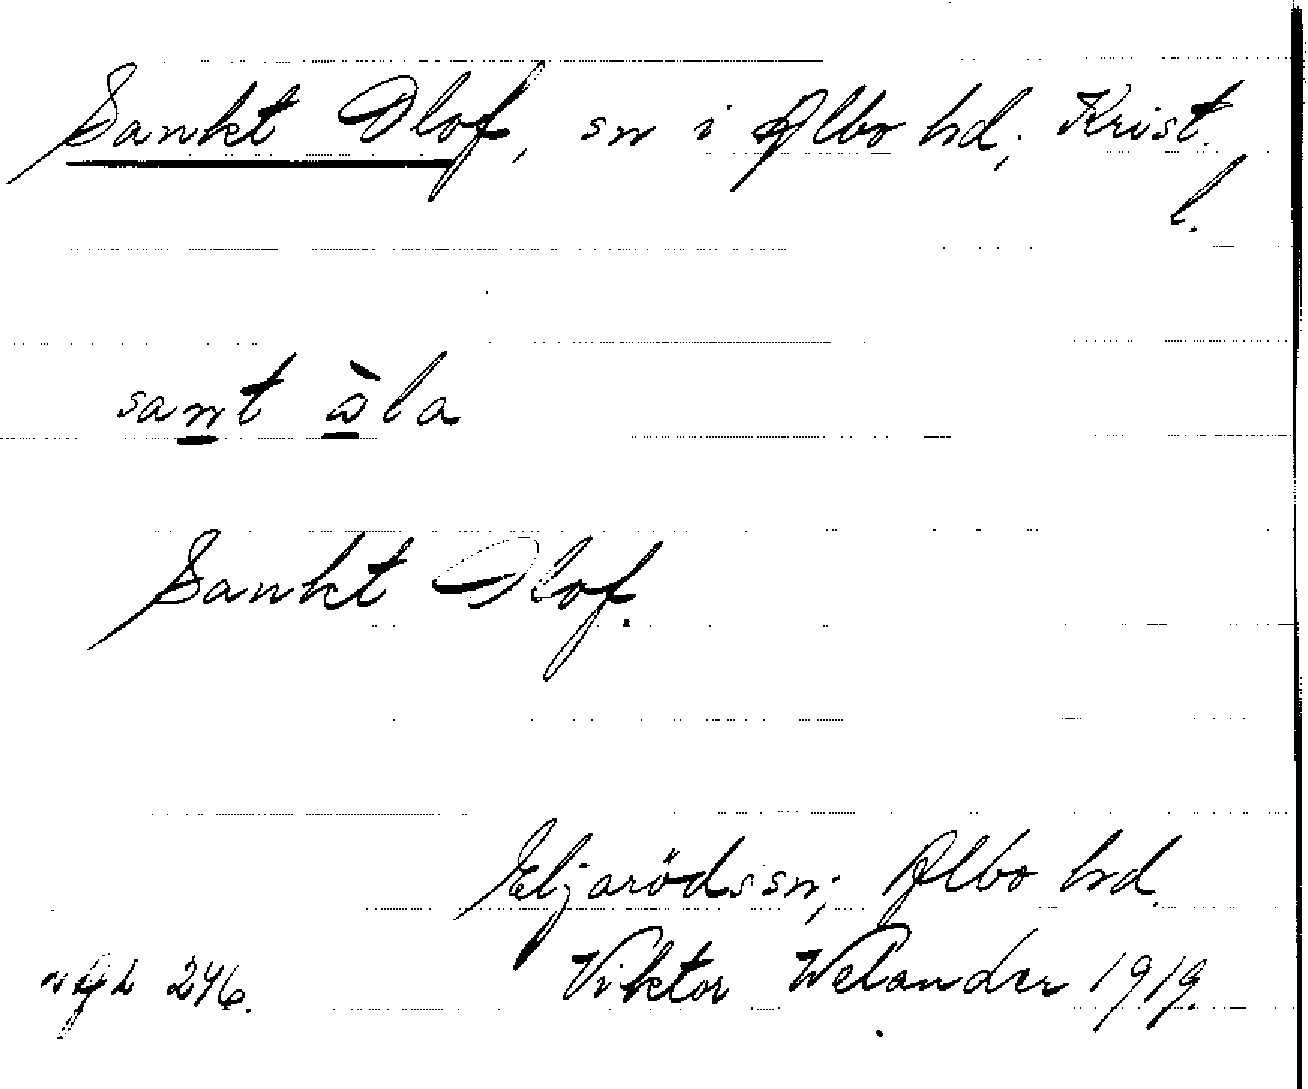 Sankt Olof, sn i Albo hd; Krist.
l.
sant àla
Sankt Olof.
Eljaröds sn; Albo hd.
246. Viktor Welander 1919.